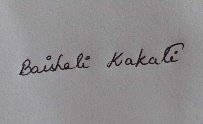 Baishali Kakati